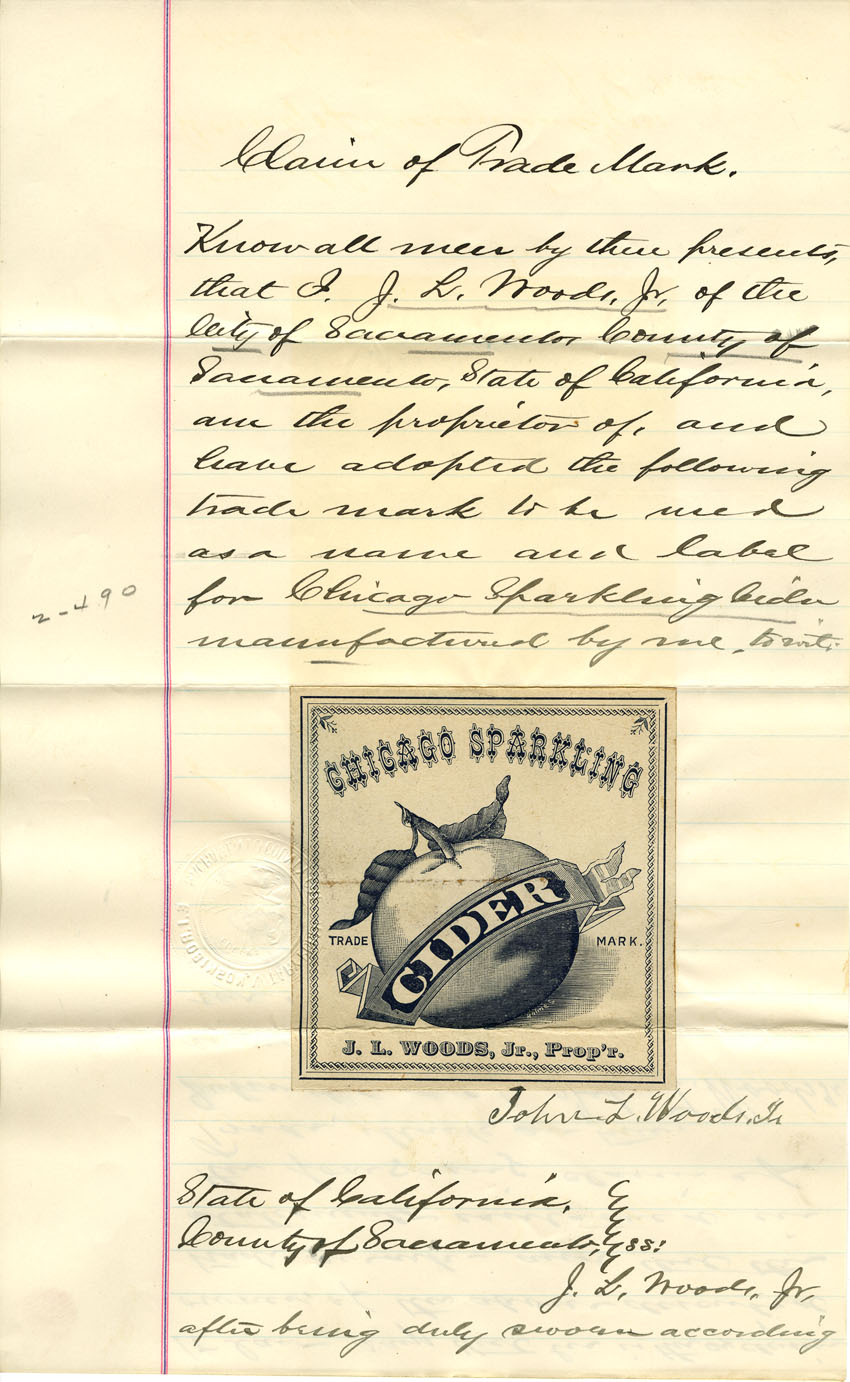 Claim of Trade Mark.
Know all men by these presents,
that I. J. L. Woods, Jr, of the
City of Sacramento, County of
Sacramento, State of California,
am the proprietor of, and
have adopted the following
trade mark to be used
as a name and label
for Chicago Sparkling Cider
2-490
manufactured by me, to wit:
CHICAGO SPARKLING
CIDER
TRADE MARK.
J. L. WOODS, Jr., Prop'r.
John L. Woods. Jr
State of California,
County of Sacramento, ss:
J. L. Woods, Jr,
after being duly sworn according